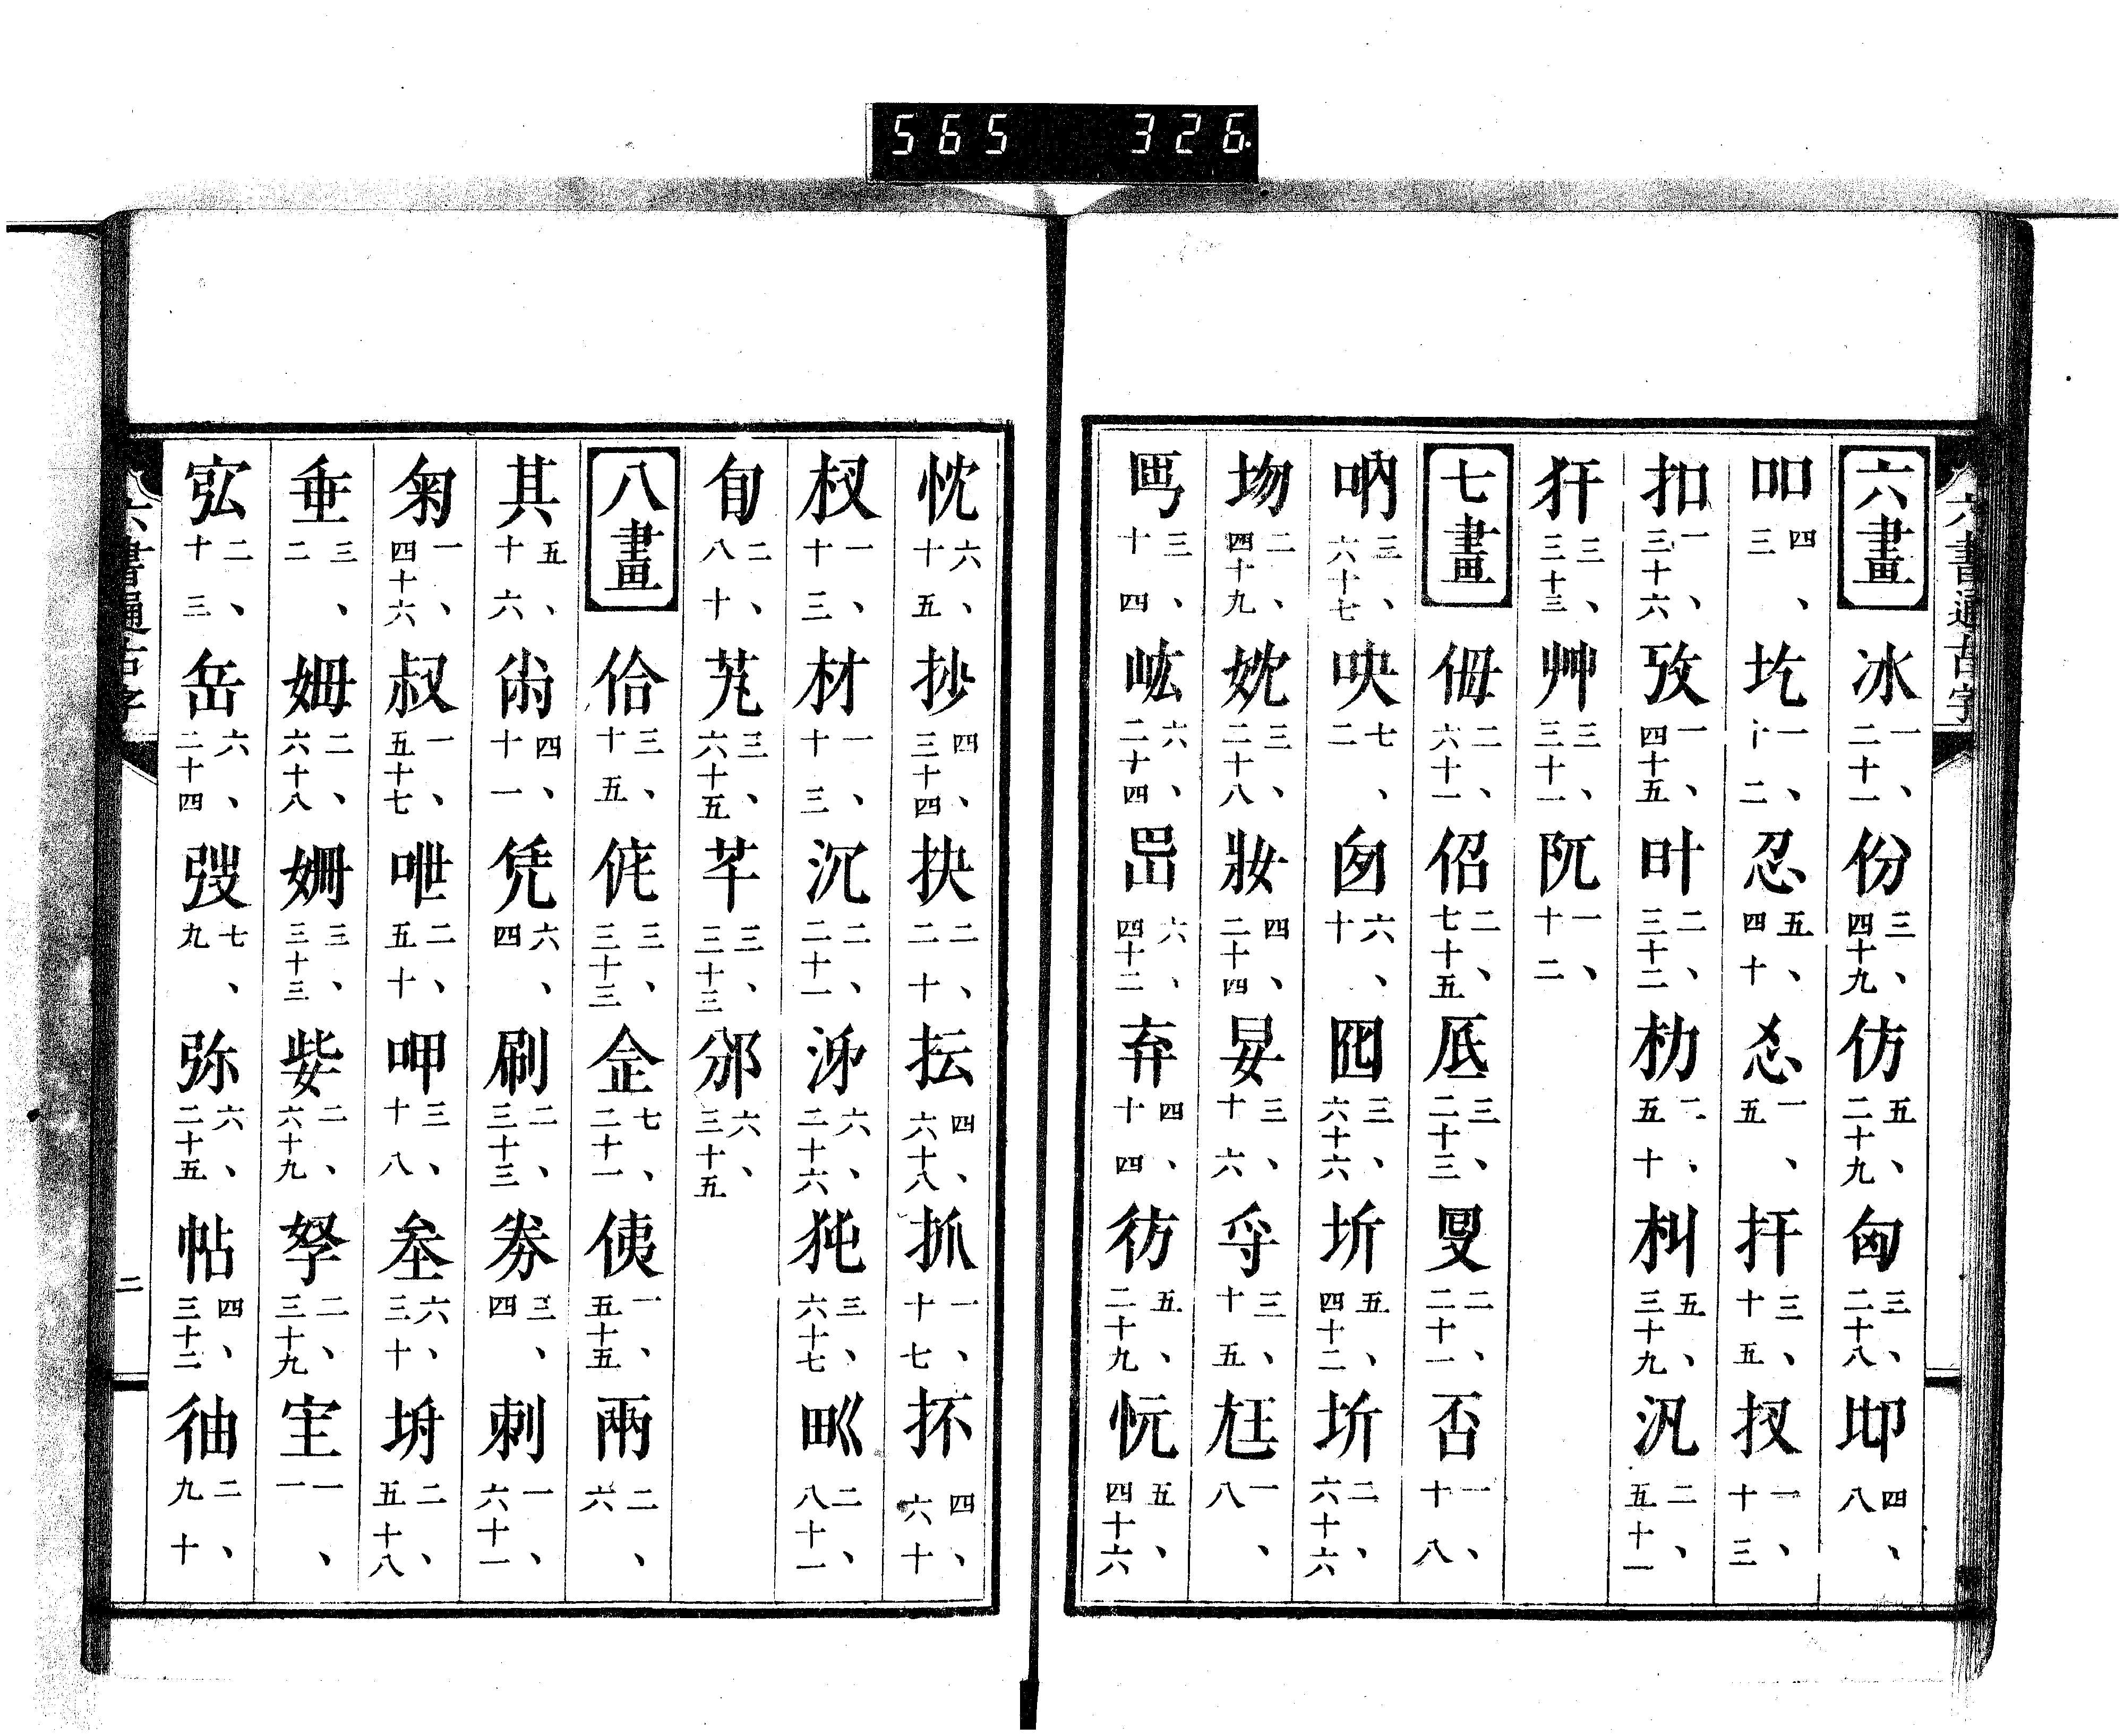 565 326
六書通古字
六畫 冰一、二十一 份三、四十九 仿五、二十九 匈三、二十八 四、八
吅四、三 圪一、十二 忍五、四十 忍一、五 扞三、十五 扠一、十三
扣一、三十六 攷一、四十五 叶二、三十二 朸二、五十 朻五、三十九 汎二、五十一
犴三、三十三 艸三、三十一 阮一、十二
七畫 二、六十一 佋二、七十五 厎三、二十三 二、二十一 否一、十八
吶三、六十七 吷七、二 囱六、十 囮三、六十六 圻五、四十二 圻二、六十六
二、四十九 妉三、二十八 妝四、二十四 三、十六 三、十五 尪一、八
三、十四 六、二十四 六、四十二 弃四、十四 彷五、二十九 忨五、四十六
忱六、十五 抄四、三十四 抉二、二十 抎四、六十八 抓一、十七 抔四、六十
杈一、十三 材一、十三 沉二、二十一 六、二十六 三、六十七 二、八十一
旬二、八十 芄三、六十五 芊三、三十三 邠六、三十五
八畫 佮三、十五 侂三、三十三 七、二十一 侇一、五十五 兩二、六
其五、十六 四、十一 凭六、四 刷二、三十三 券三、四 刺一、六十一
匊一、四十六 叔一、五十七 呭二、五十 呷三、十八 六、三十 坿二、五十八
垂三、二 姆二、六十八 姍三、三十三 二、六十九 孥二、三十九 宔一、一
二、十三 岳六、二十四 七、九 弥六、二十五 帖四、三十二 二、九十
六書通古字 二